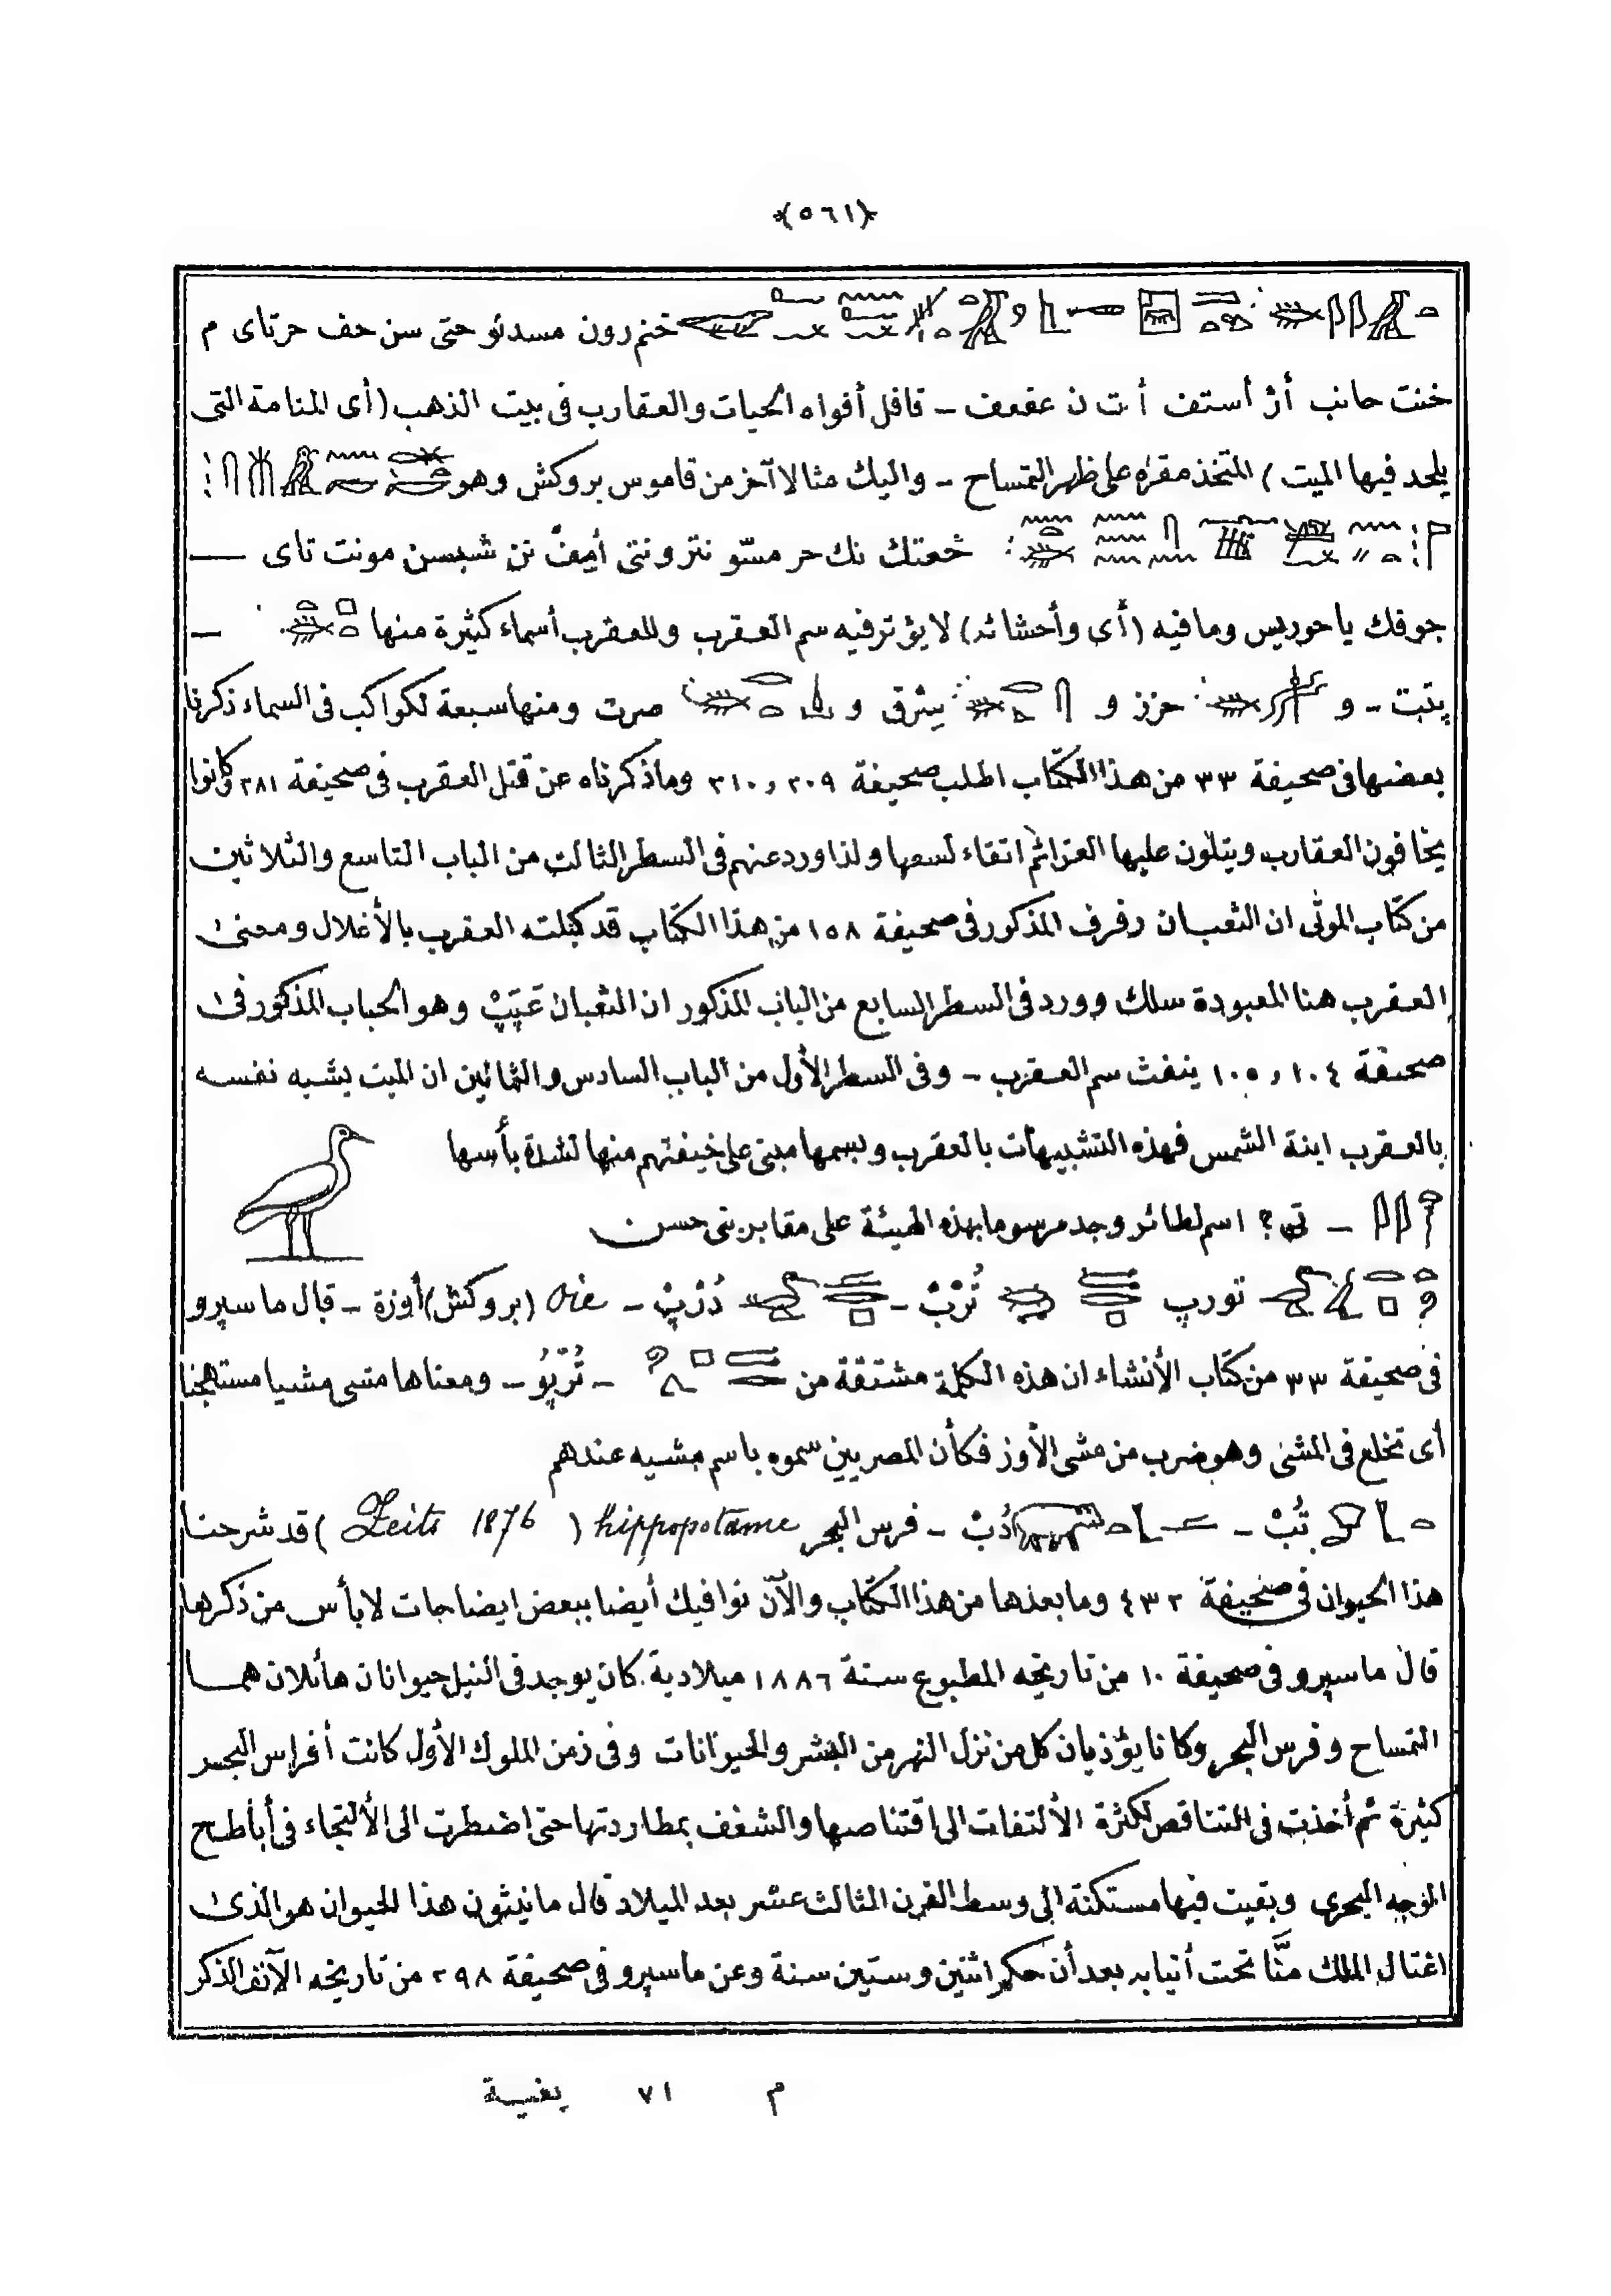 ﴿٥٦١﴾
ختم رون مسدئو حتى سن حف حر تاى م
خنت حانب أز أستف أ.ت ن عقعف – قافل أفواه الحيات والعقارب فى بيت الذهب (أى المنامة التى
يلحد فيها الميت) المتخذ مقره على ظهر التمساح – واليك مثالا آخر من قاموس بروكش وهو
خعتك نك حر مسّو نترو نتى أمف نن شبسن مونت تاى —
جوفك يا حوريس وما فيه (أى وأحشائه) لا يؤثر فيه سم العقرب وللعقرب أسماء كثيرة منها —
پتبت – و حزز و يثرق و صرت ومنها سبعة لكواكب فى السماء ذكرنا
بعضها فى صحيفة ٣٣ من هذا الكتاب اطلب صحيفة ٢٠٩ و ٢١٠ وما ذكرناه عن قتل العقرب فى صحيفة ٢٨١ وكانوا
يخافون العقارب ويتلون عليها العزائم اتقاء لسعها ولذا ورد عنهم فى السطر الثالث من الباب التاسع والثلاثين
من كتاب الموتى ان الثعبان رفرف المذكور فى صحيفة ١٥٨ من هذا الكتاب قد كبلته العقرب بالأغلال ومعنى
العقرب هنا المعبودة سلك وورد فى السطر السابع من الباب المذكور ان الثعبان عَپَپْ وهو الحباب المذكور فى
صحيفة ١٠٤ و ١٠٥ ينفث سم العقرب – وفى السطر الأول من الباب السادس والثمانين ان الميت يشبه نفسه
بالعقرب ابنة الشمس فهذه التشبيهات بالعقرب وبسمها مبنى على خيفتهم منها لشدة بأسها
– تى؟ اسم لطائر وجد مرسوما بهذه الهيئة على مقابر بنى حسن
تورپ تُرْبْ – دُرْپْ – Oie (بروكش) أوزة – قال ماسپرو
فى صحيفة ٣٣ من كتاب الأنشاء ان هذه الكلمة مشتقة من – تُرْپُو – ومعناها مشى مشيا مستهجنا
أى تخلع فى المشى وهو ضرب من مشى الأوز فكأن المصريين سموه باسم مشيه عندهم
تُبْ – دُبْ – فرس البحر hippopotame (Zeits 1876) قد شرحنا
هذا الحيوان فى صحيفة ٤٣٢ وما بعدها من هذا الكتاب والآن نوافيك أيضا ببعض ايضاحات لا بأس من ذكرها
قال ماسپرو فى صحيفة ١٠ من تاريخه المطبوع سنة ١٨٨٦ ميلادية كان يوجد فى النيل حيوانان هائلان هما
التمساح وفرس البحر وكانا يؤذيان كل من نزل النهر من البشر والحيوانات وفى زمن الملوك الأول كانت أفراس البحر
كثيرة ثم أخذت فى التناقص لكثرة الألتفات الى اقتناصها والشغف بمطاردتها حتى اضطرت الى الألتجاء فى أباطح
الوجه البحرى وبقيت فيها مستكنة الى وسط القرن الثالث عشر بعد الميلاد قال مانيثون هذا الحيوان هو الذى
اغتال الملك منّا تحت أنيابه بعد أن حكم اثنين وستين سنة وعن ماسپرو فى صحيفة ٢٩٨ من تاريخه الآنف الذكر
م ٧١ بغية